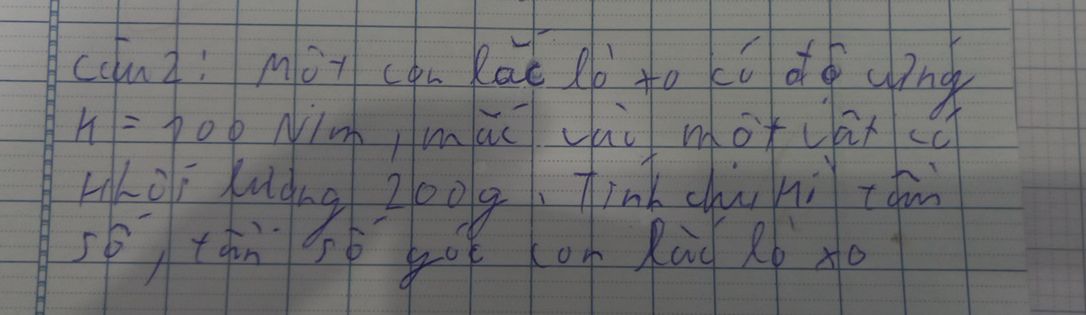 Câu 2: Một con lắc lò xo có độ cứng
K = 100 N/m, mắc vào một vật có
khối lượng 200g. Tính chu kì tần
số, tần số góc con lắc lò xo